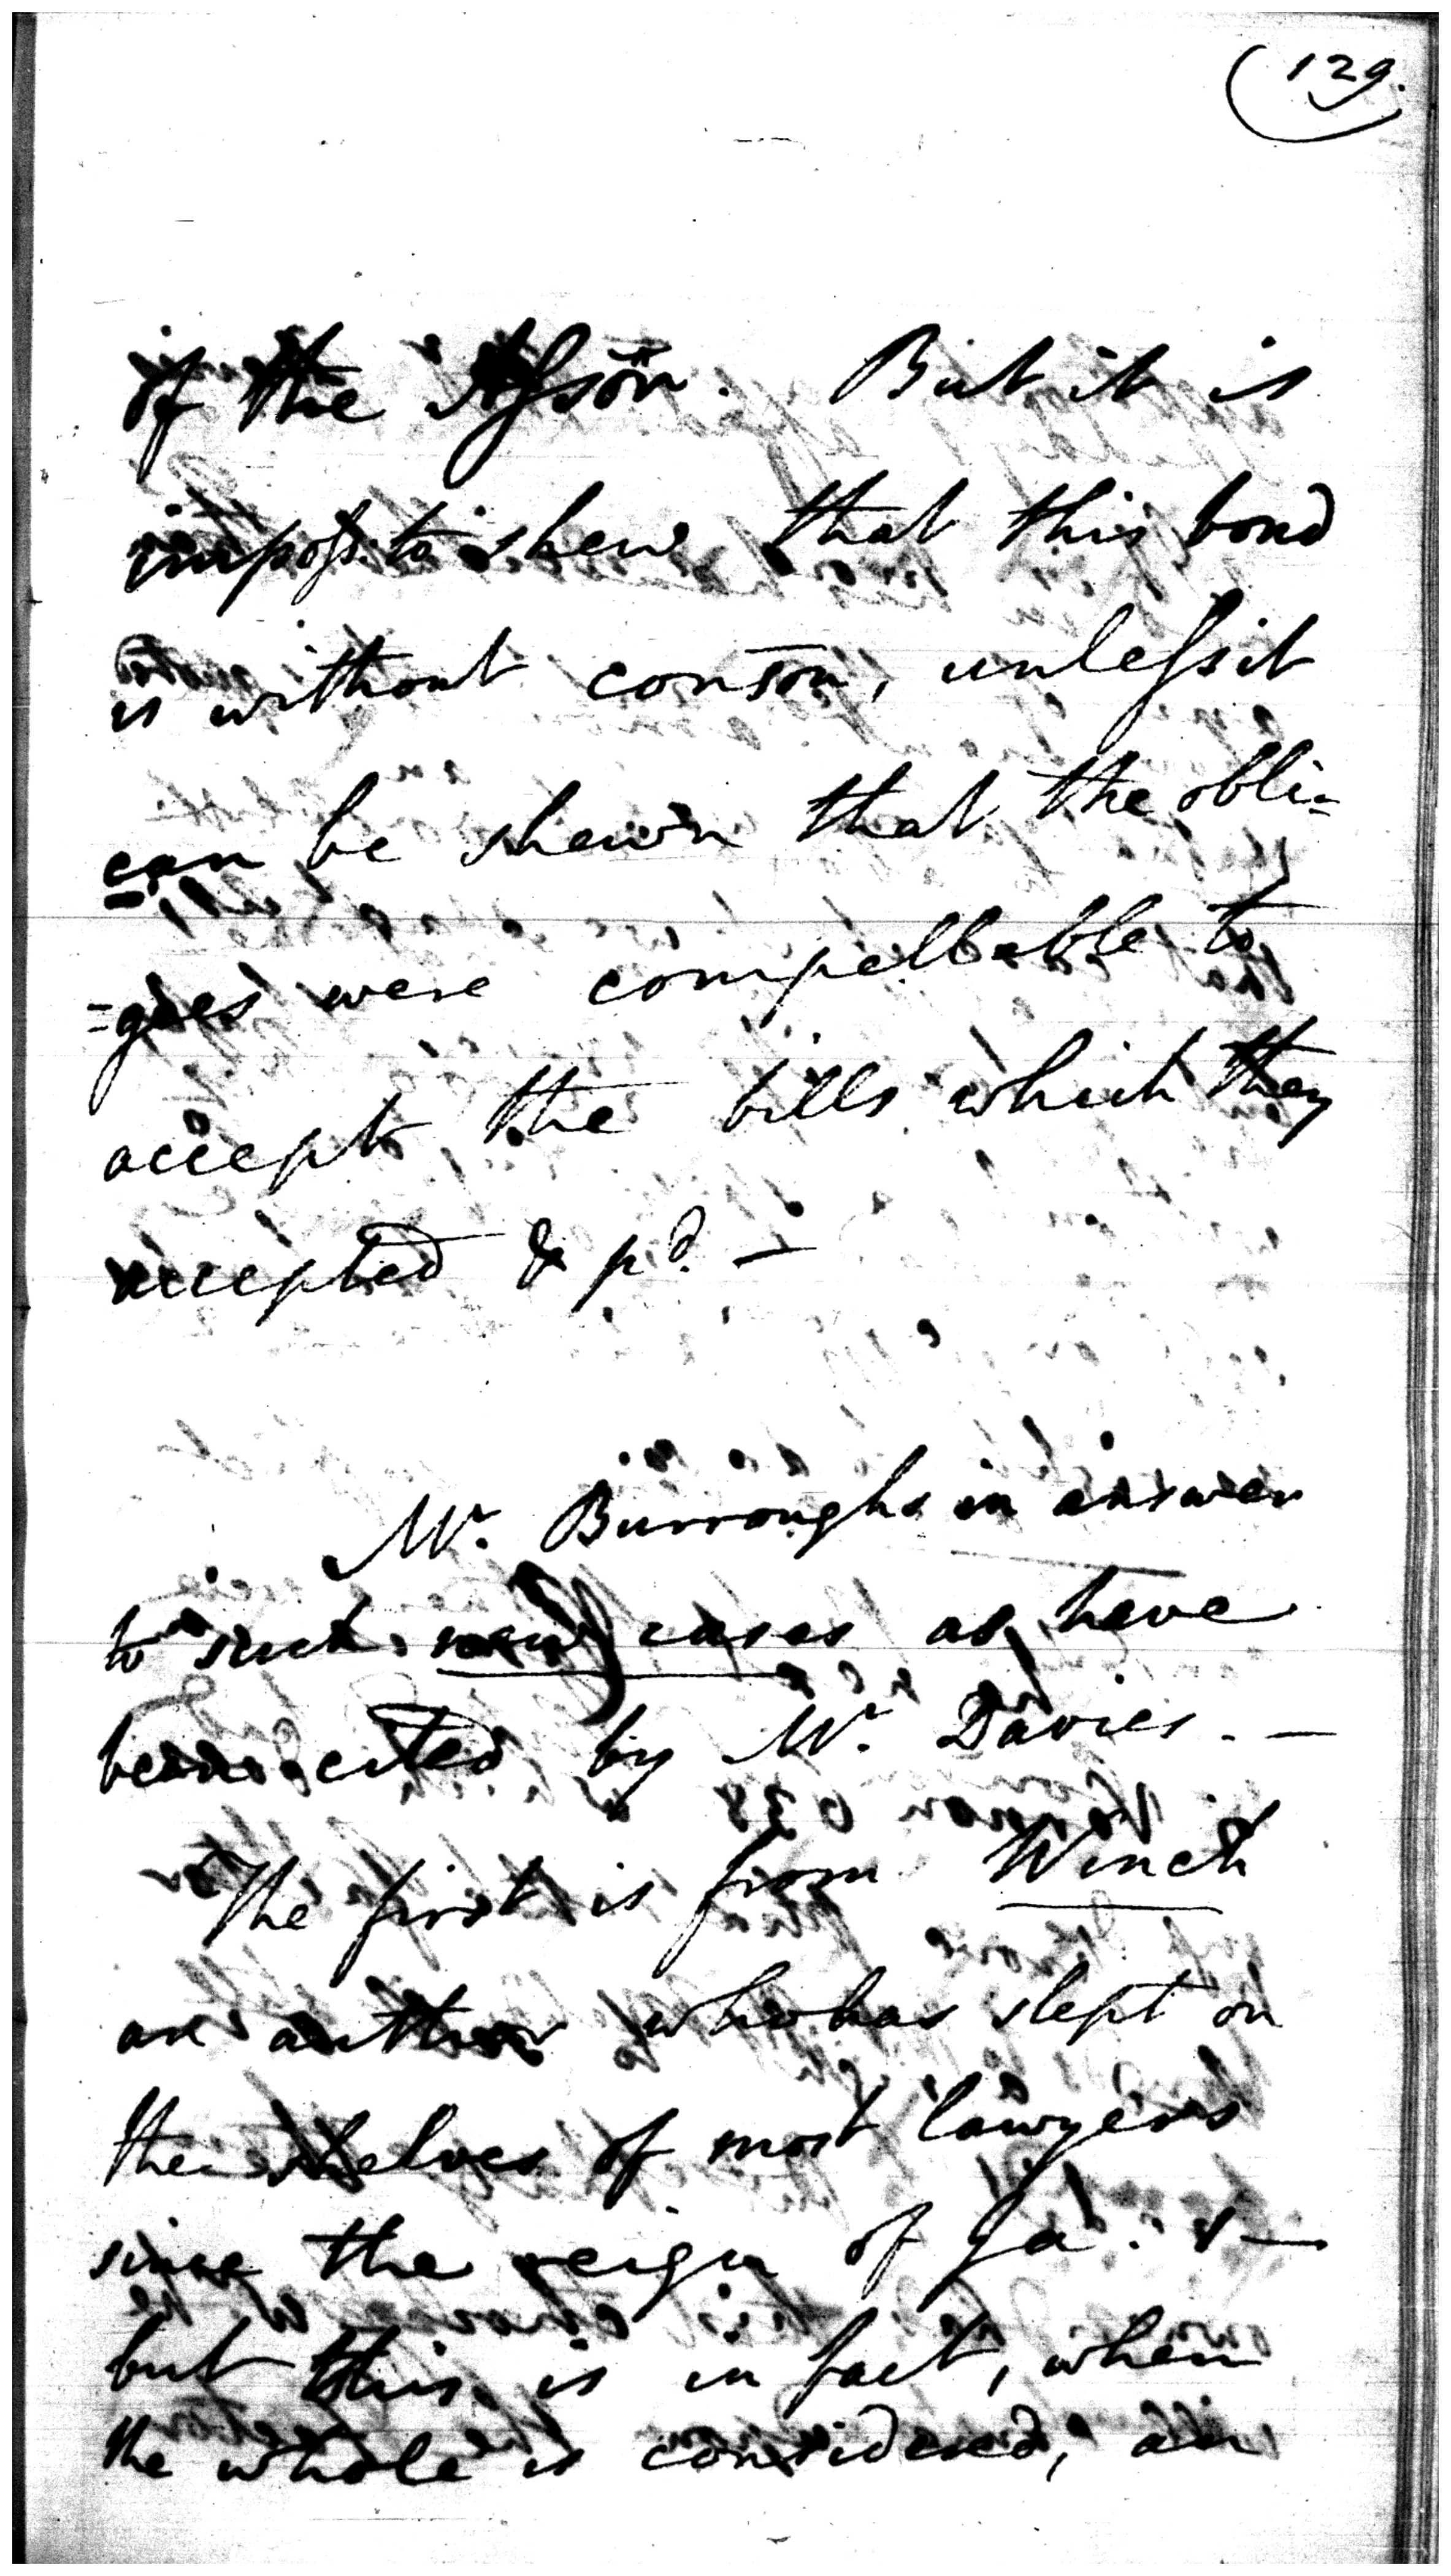 129.
of the Assōn. But it is
imposs. to shew that this bond
is without consōn, unless it
can be shewn that the obli=
=gees were compellable to
accept the bills which they
accepted & pd. —
Mr. Burroughs in answer
to such new cases as have
been cited by Mr. Davies. —
The first is from Winch
an author who has slept on
the shelves of most lawyers
since the reign of Ja. 1 —
but this is in fact, when
the whole is considered, an